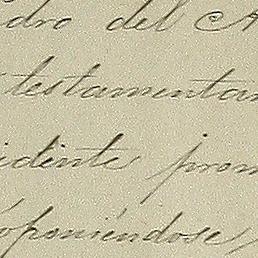 dro del A
testamentar
idente prom
óponiéndose